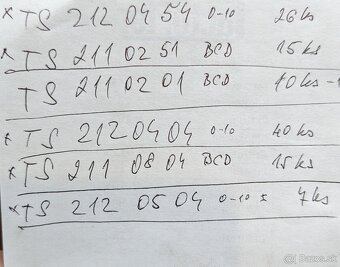 × TS 212 04 54 0-10 26 ks
× TS 211 02 51 BCD 15 ks
TS 211 02 01 BCD 10 ks -
× TS 212 04 04 0-10 40 ks
× TS 211 08 04 BCD 15 ks
× TS 212 05 04 0-10 7 ks
Bazos.sk